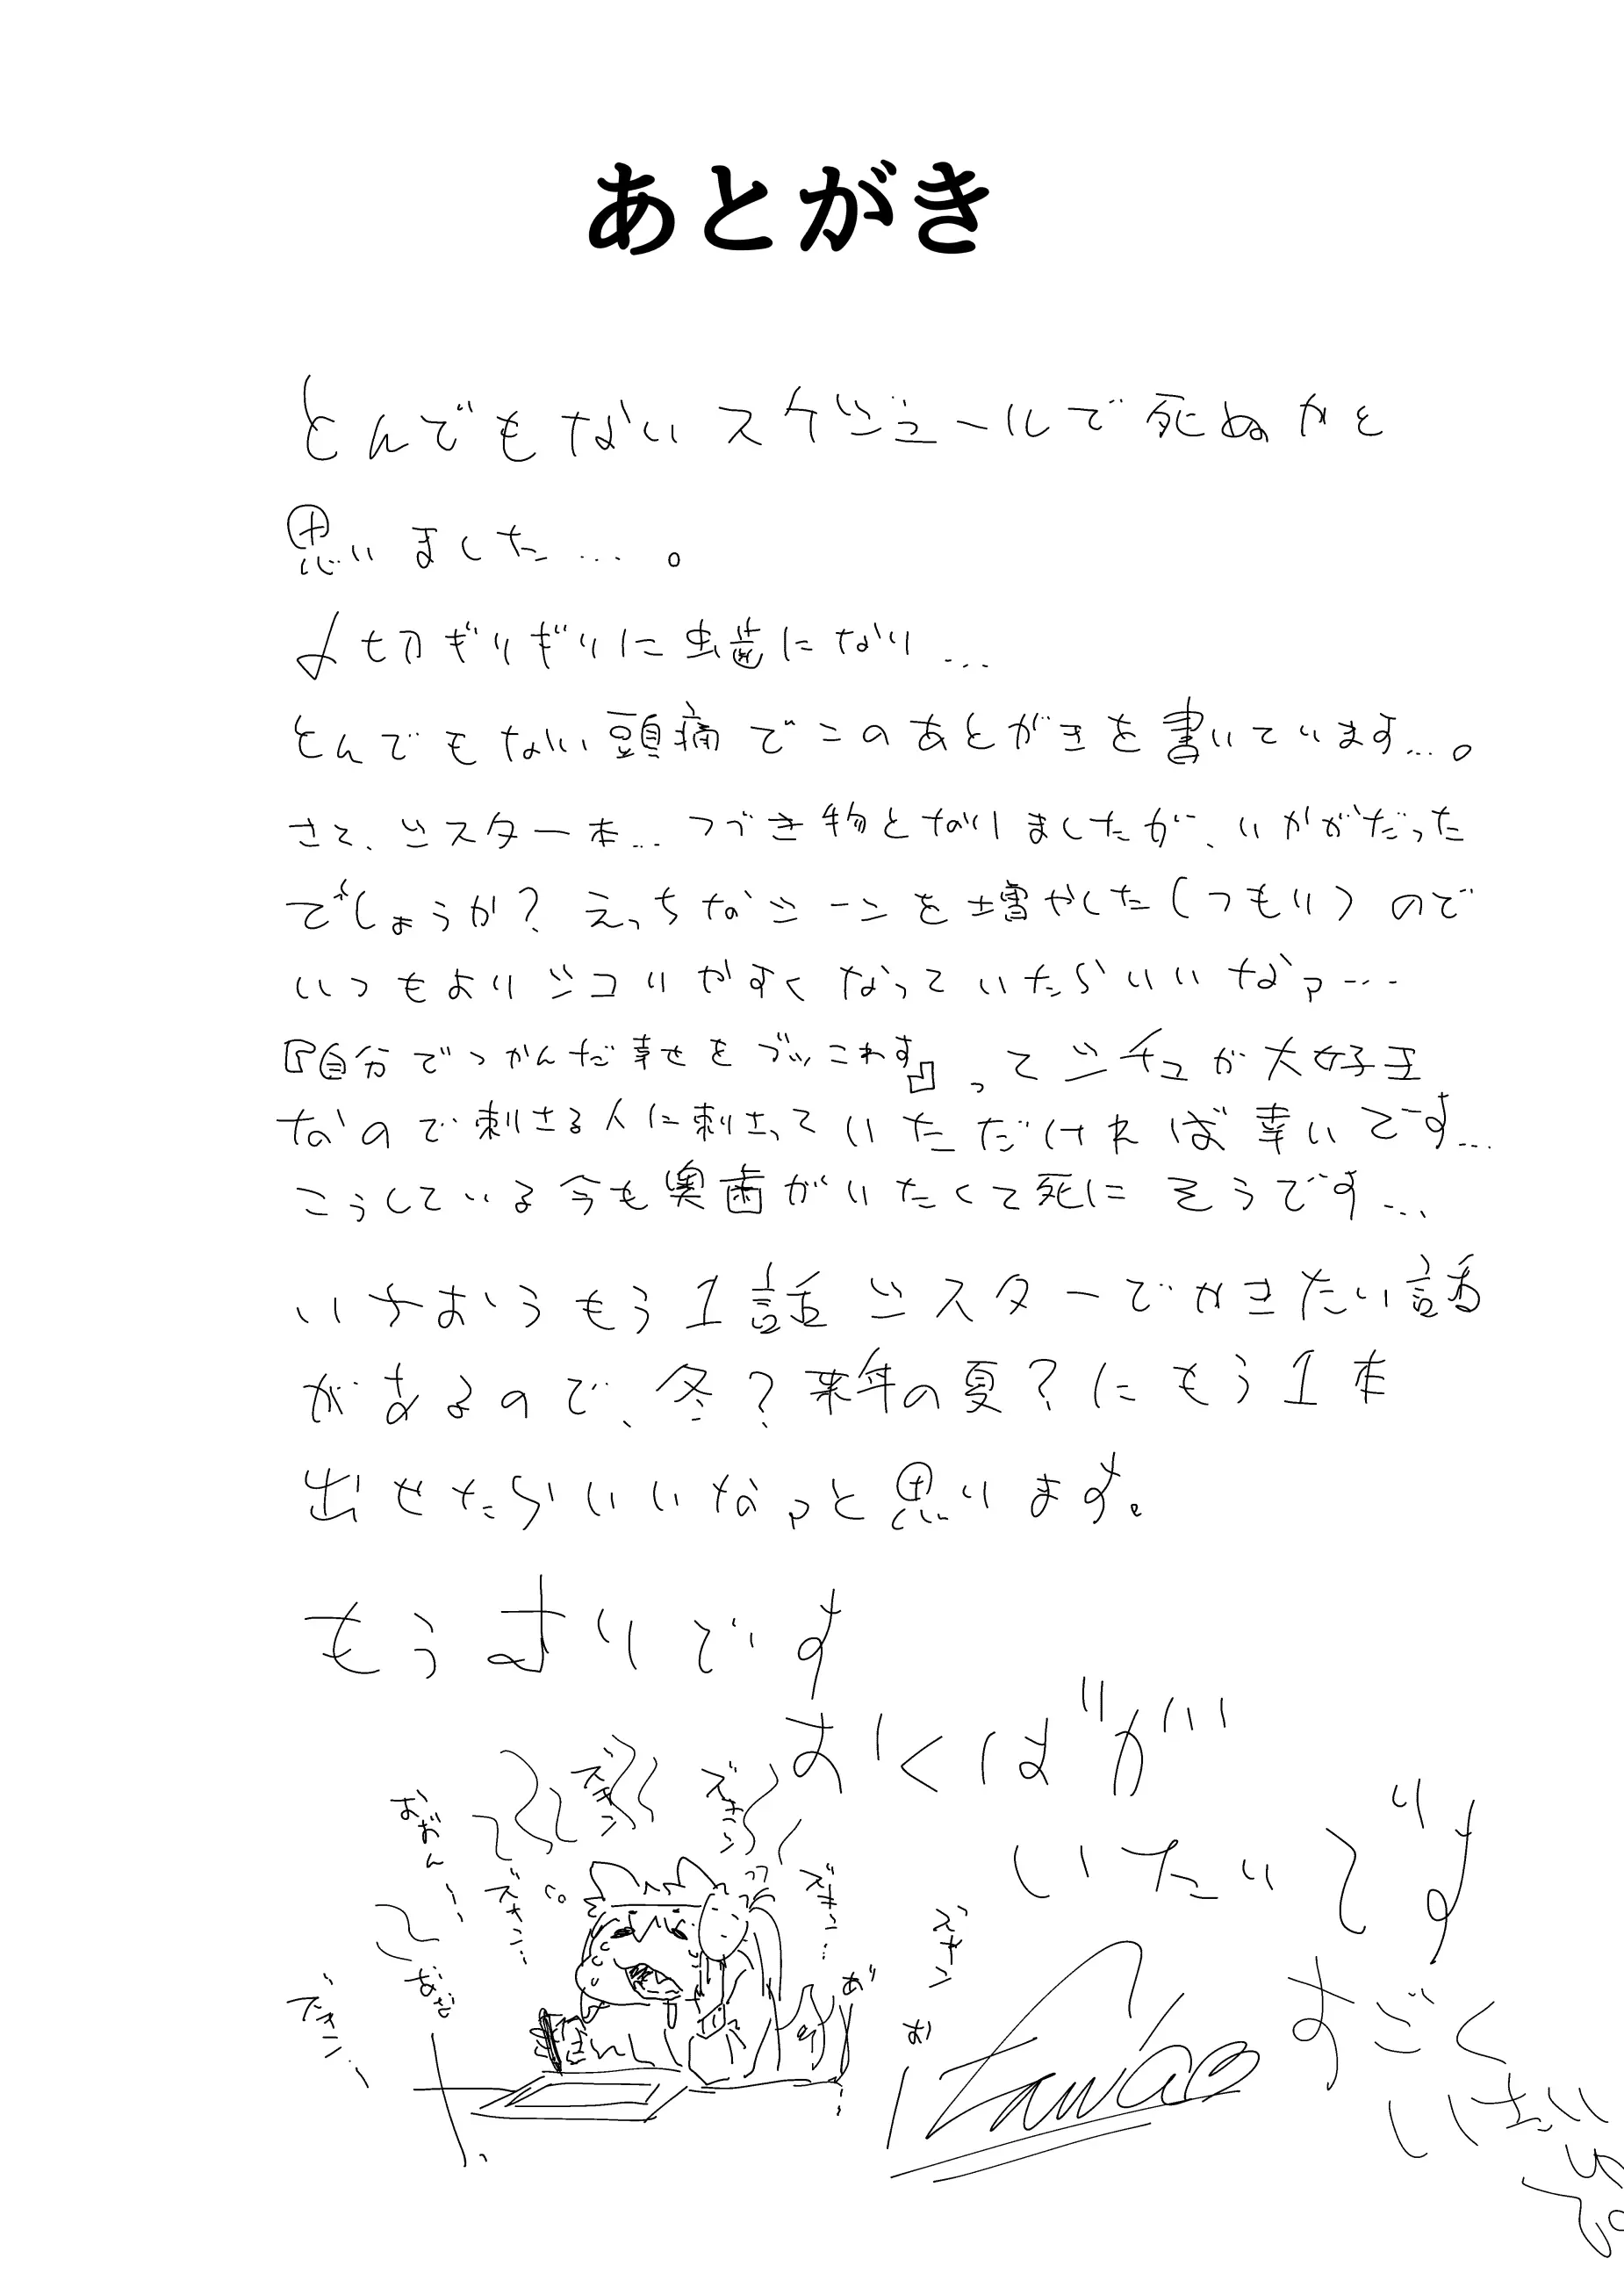 あとがき
とんでもないスケジュールで死ぬかと
思いました…。
〆切ぎりぎりに虫歯になり…
とんでもない頭痛でこのあとがきを書いています…。
さて、シスター本… つづき物となりましたが、いかがだった
でしょうか? えっちなシーンを増やした(つもり)ので
いつもよりシコりやすくなっていたらいいなァ…
『自分でつかんだ幸せをブッこわす』ってシチュが大好王
なので刺さる人に刺さっていただければ幸いです…
こうしている今も奥歯がいたくて死にそうです…
いちおうもう1話シスターでかきたい話
があるので、冬?来年の夏?にもう1本
出せたらいいなァと思います。
もうまりです
おくばが
いたいです
すごく
いたい
ズキン
ズキン
おおん
ズキン…
ズキン…
ズキン
ズキン…
お